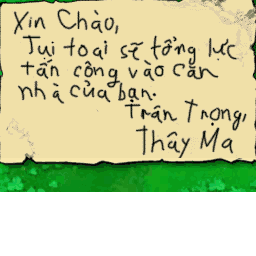 Xin Chào,
Tụi toại sẽ tổng lực
tấn công vào căn
nhà của bạn.
Trân Trọng,
Thây Ma